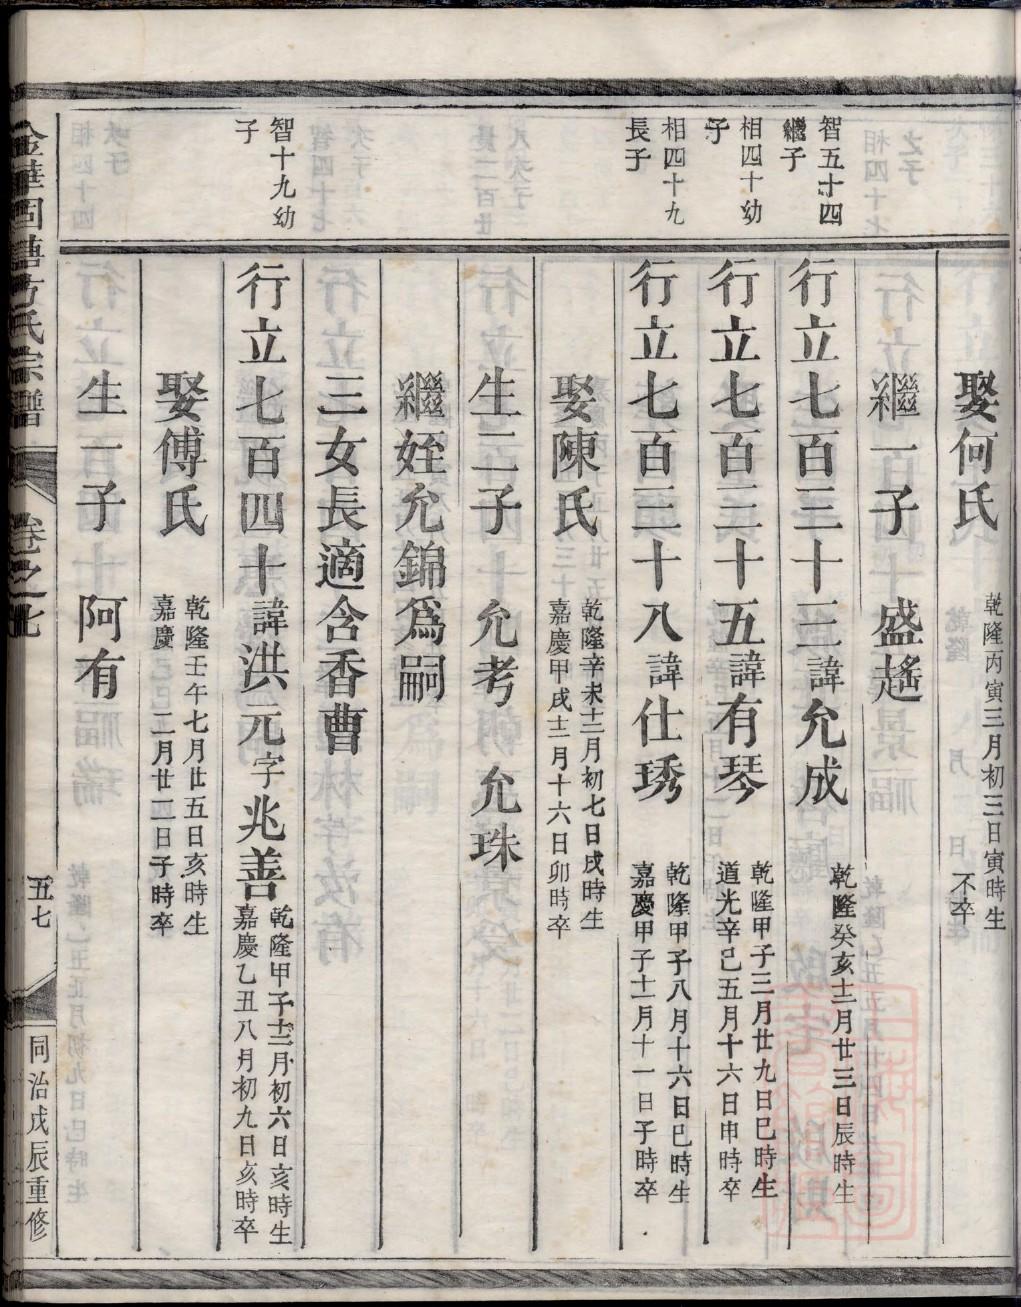 娶何氏
乾隆丙寅三月初三日寅時生
不卒
繼一子 盛遙
智五十四
繼子
行立七百三十三諱允成
乾隆癸亥十二月廿三日辰時生
相四十幼
子
行立七百三十五諱有琴
乾隆甲子三月廿九日巳時生
道光辛巳五月十六日申時卒
相四十九
長子
行立七百三十八諱仕琇
乾隆甲子八月十六日巳時生
嘉慶甲子十二月十一日子時卒
娶陳氏
乾隆辛未十二月初七日戌時生
嘉慶甲戌十二月十六日卯時卒
生二子 允考 允珠
繼姪允錦為嗣
三女長適含香曹
智十九幼
子
行立七百四十諱洪元字兆善
乾隆甲子十二月初六日亥時生
嘉慶乙丑八月初九日亥時卒
娶傅氏
乾隆壬午七月廿五日亥時生
嘉慶 二月廿二日子時卒
生一子 阿有
金華固塘方氏宗譜
卷之
五七
同治戊辰重修